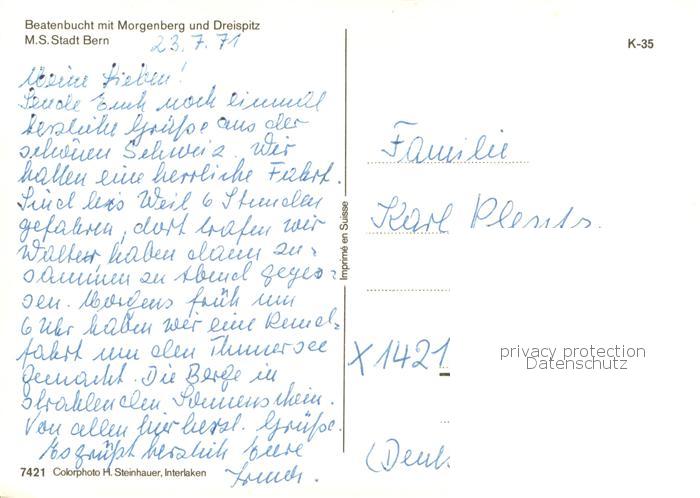 Beatenbucht mit Morgenberg und Dreispitz
M.S. Stadt Bern
23.7.71
K-35
Meine Lieben!
Sende Euch noch einmal
herzliche Grüße aus der
schönen Schweiz. Wir
hatten eine herrliche Fahrt.
Sind bis Weil 6 Stunden
gefahren, dort trafen wir
Walter, haben dann zu-
sammen zu Abend geges-
sen. Morgens früh um
6 Uhr haben wir eine Rund-
fahrt um den Thunersee
gemacht. Die Berge im
strahlenden Sonnenschein.
Von allen hier herzl. Grüße.
Es grüßt herzlich Eure
7421 Colorphoto H. Steinhauer, Interlaken
Imprimé en Suisse
Familie
Karl
X1421
privacy protection
Datenschutz
(Deut